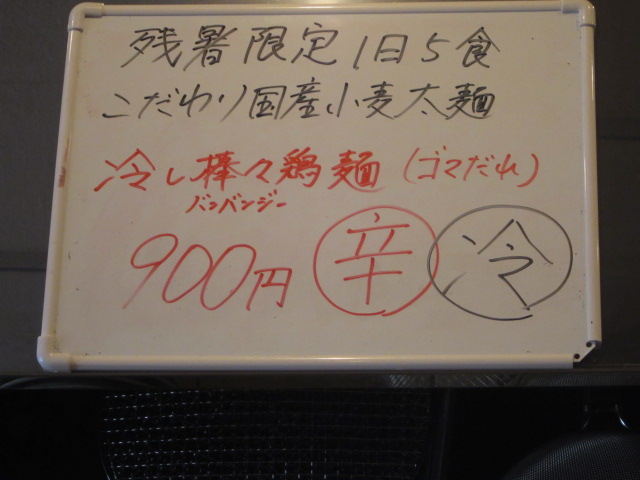 残暑限定1日5食
こだわり国産小麦太麺
冷し棒々鶏麺(ゴマだれ)
バンバンジー
900円 辛 冷